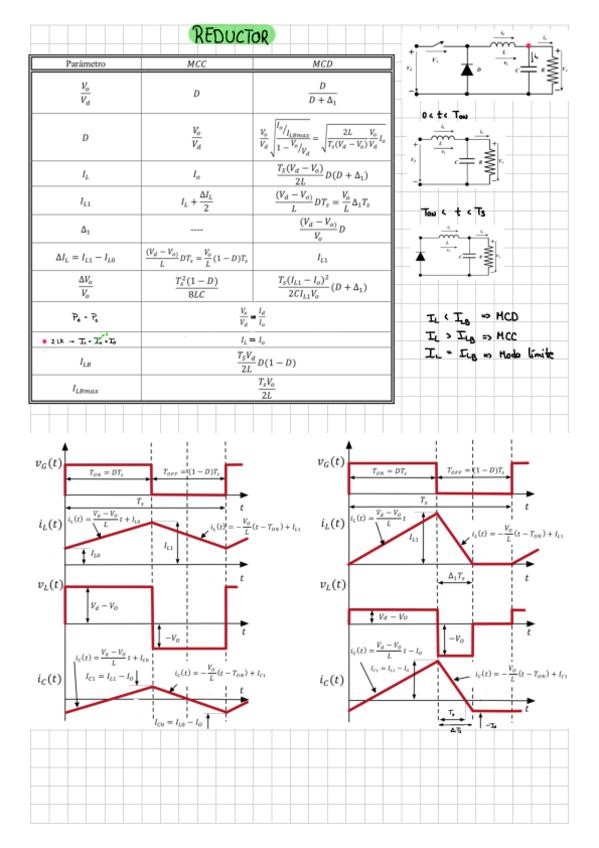 REDUCTOR
Parámetro MCC MCD
V_o/V_d D D/(D + Δ_1)
D V_o/V_d V_o/V_d √((I_o/I_LBmax)/(1 − V_o/V_d)) = √(2L/(T_s(V_d − V_o)) V_o/V_d I_o)
I_L I_o T_S(V_d − V_o)/2L D(D + Δ_1)
I_L1 I_L + ΔI_L/2 (V_d − V_o)/L DT_s = V_o/L Δ_1T_s
Δ_1 ---- (V_d − V_o)/V_o D
ΔI_L = I_L1 − I_L0 (V_d − V_o)/L DT_s = V_o/L (1 − D)T_s I_L1
ΔV_o/V_o T_s²(1 − D)/8LC T_s(I_L1 − I_o)²/2CI_L1V_o (D + Δ_1)
V_o/V_d = I_d/I_o
I_L = I_o
I_LB T_SV_d/2L D(1 − D)
I_LBmax T_sV_o/2L
0 < t < T_ON
T_ON < t < T_S
I_L < I_LB => MCD
I_L > I_LB => MCC
I_L = I_LB => Modo límite
v_G(t) T_ON = DT_s T_OFF = (1 − D)T_s t
T_s
i_L(t) i_L(t) = (V_d − V_O)/L t + I_L0 I_L0 I_L1 i_L(t) = −V_O/L (t − T_ON) + I_L1 t
v_L(t) V_d − V_O −V_O t
i_C(t) i_C(t) = (V_d − V_O)/L t + I_C0 I_C1 = I_L1 − I_O i_C(t) = −V_O/L (t − T_ON) + I_C1 t
I_C0 = I_L0 − I_O
v_G(t) T_ON = DT_s T_OFF = (1 − D)T_s t
T_s
i_L(t) i_L(t) = (V_d − V_O)/L t I_L1 i_L(t) = −V_O/L (t − T_ON) + I_L1 t
Δ_1T_s
v_L(t) V_d − V_O −V_O t
i_C(t) i_C(t) = (V_d − V_O)/L t − I_O I_C1 = I_L1 − I_O i_C(t) = −V_O/L (t − T_ON) + I_C1 t
−I_O